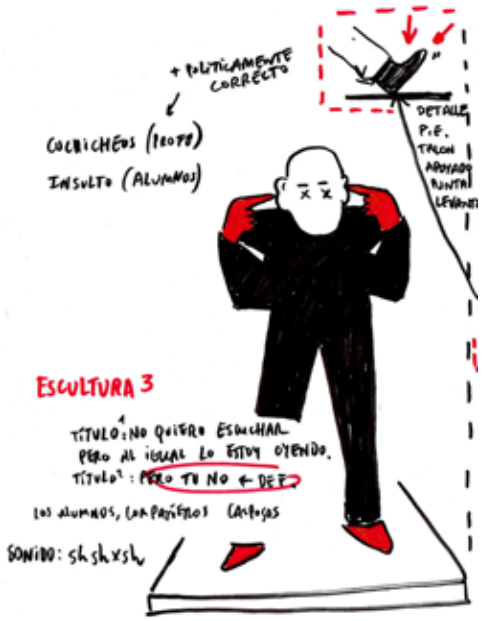 + POLÍTICAMENTE
CORRECTO
COCHICHEOS (PROFE)
INSULTO (ALUMNOS)
DETALLE
PIE.
TALON
APOYADO
PUNTA
LEVANTA
ESCULTURA 3
TÍTULO¹: NO QUIERO ESCUCHAR
PERO AL IGUAL LO ESTOY OYENDO.
TÍTULO²: PERO TU NO ← DEF.
LOS ALUMNOS, COMPAÑEROS
SONIDO: shshxsh